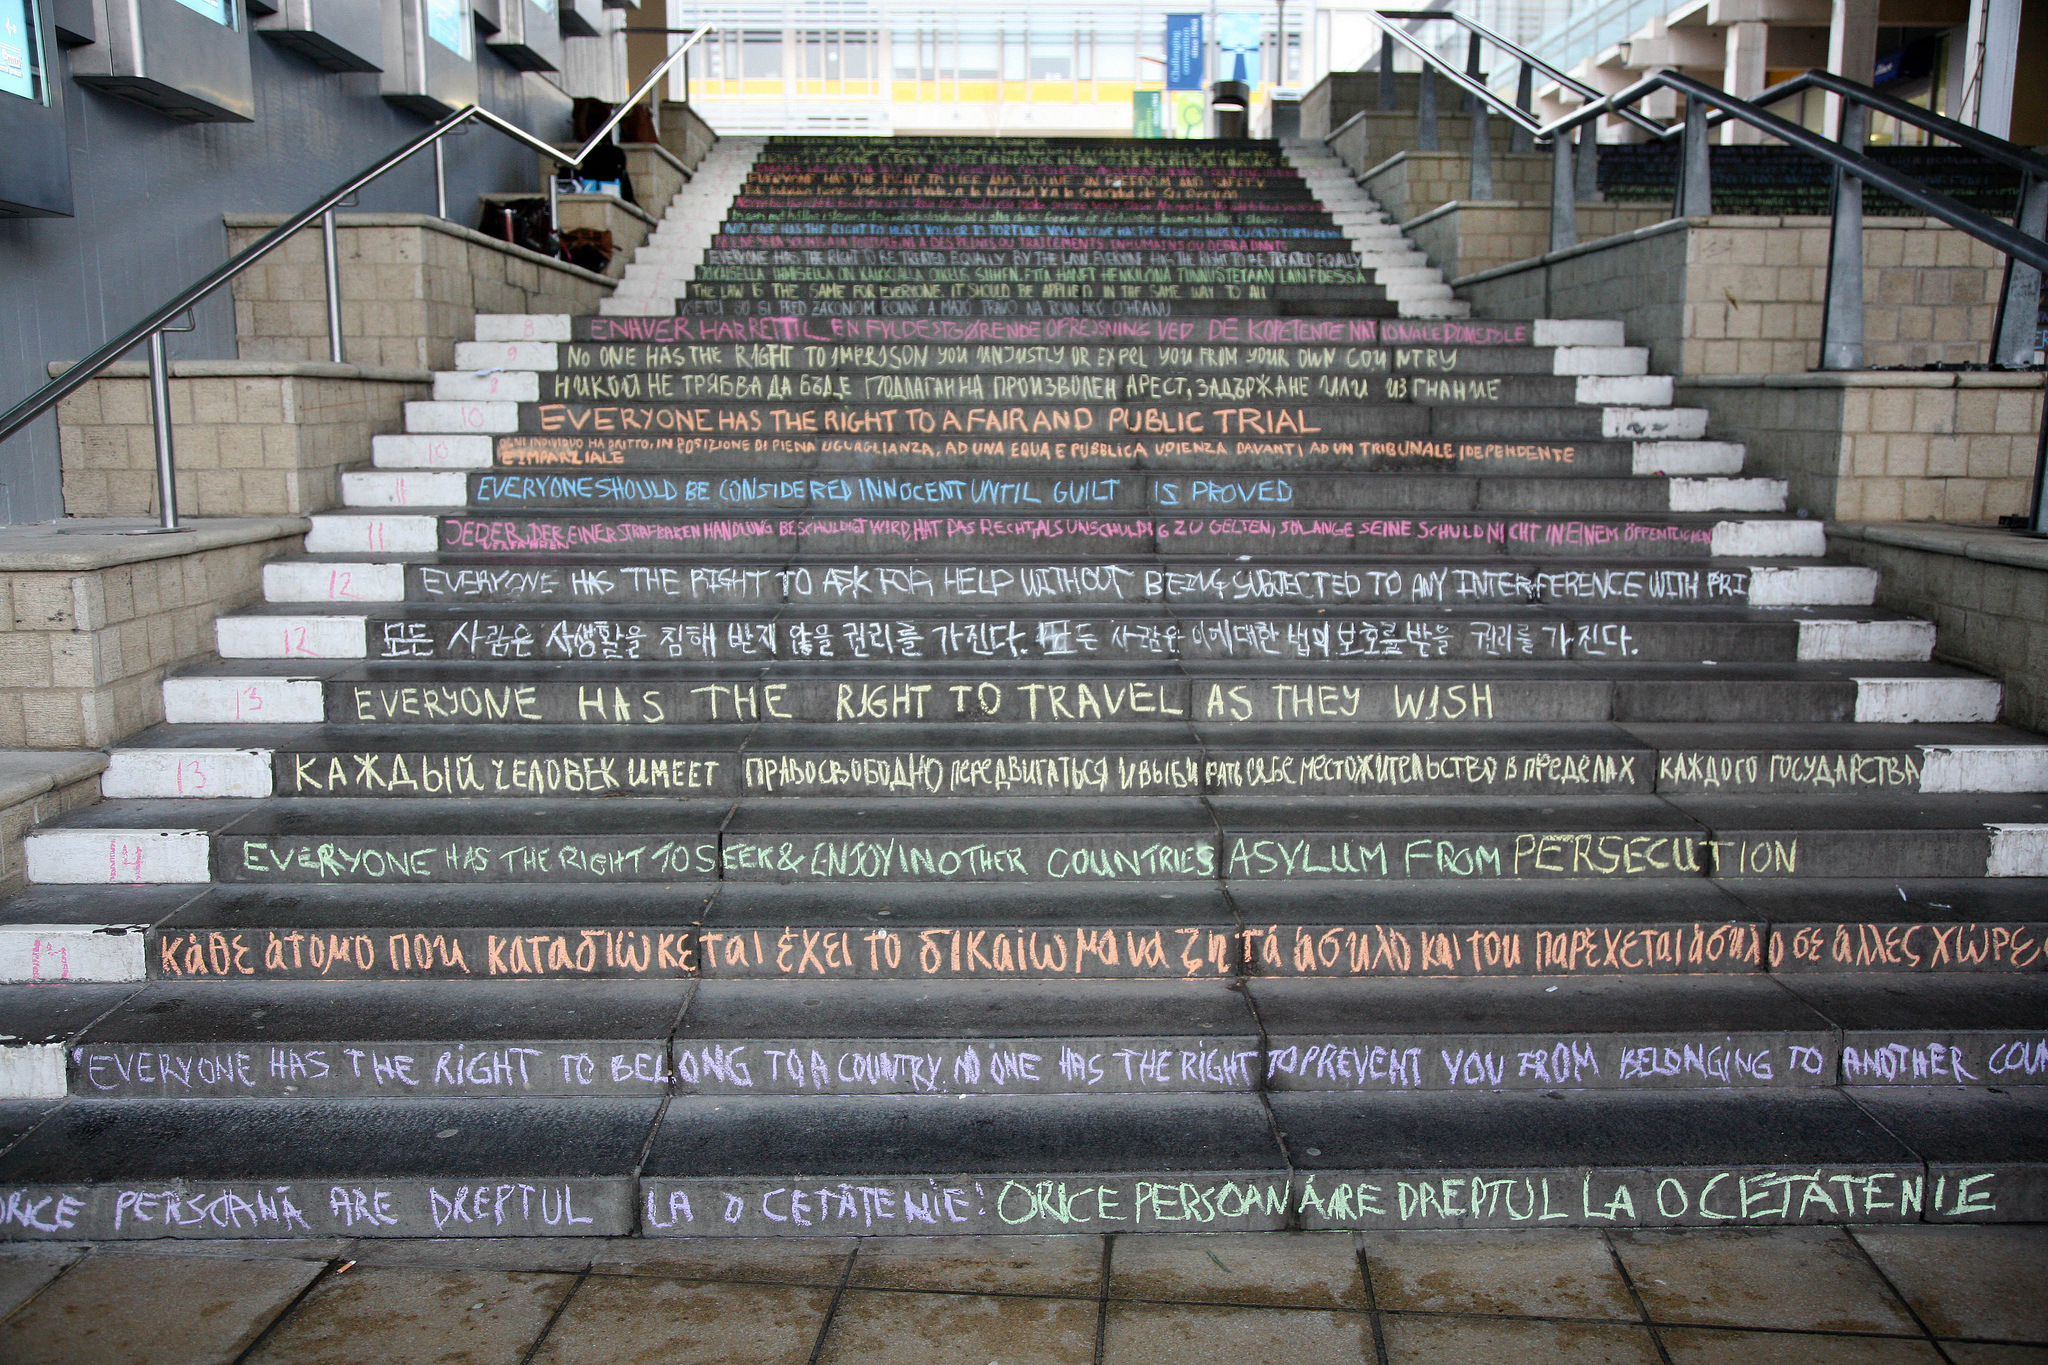 Challenging convention since 1964
EVERYONE HAS THE RIGHT TO LIFE AND TO LIVE IN FREEDOM AND SAFETY
NO ONE HAS THE RIGHT TO HURT YOU OR TO TORTURE YOU NO ONE HAS THE RIGHT TO HURT YOU OR TO TORTURE YOU
NI A DES PEINES OU TRAITEMENTS INHUMAINS OU DEGRADANTS
EVERYONE HAS THE RIGHT TO BE TREATED EQUALLY BY THE LAW. EVERYONE HAS THE RIGHT TO BE TREATED EQUALLY
JOKAISELLA IHMISELLA ON KAIKKIALLA OIKEUS SIIHEN, ETTA HANET HENKILONA TUNNUSTETAAN LAIN EDESSA
THE LAW IS THE SAME FOR EVERYONE. IT SHOULD BE APPLIED IN THE SAME WAY TO ALL
SI PRED ZAKONOM ROVNI A MAJÚ PRAVO NA ROVNAKÚ OCHRANU
8 ENHVER HAR RET TIL EN FYLDESTGØRENDE OPREJSNING VED DE KOPETENTE NATIONALE DOMSTOLE
9 NO ONE HAS THE RIGHT TO IMPRISON YOU UNJUSTLY OR EXPEL YOU FROM YOUR OWN COUNTRY
9 НИКОЙ НЕ ТРЯБВА ДА БЪДЕ ПОДЛАГАН НА ПРОИЗВОЛЕН АРЕСТ, ЗАДЪРЖАНЕ ИЛИ ИЗГНАНИЕ
10 EVERYONE HAS THE RIGHT TO A FAIR AND PUBLIC TRIAL
10 OGNI INDIVIDUO HA DIRITTO, IN POSIZIONE DI PIENA UGUAGLIANZA, AD UNA EQUA E PUBBLICA UDIENZA DAVANTI AD UN TRIBUNALE IDEPENDENTE
E IMPARZIALE
11 EVERYONE SHOULD BE CONSIDERED INNOCENT UNTIL GUILT IS PROVED
11 JEDER, DER EINER STRAFBAREN HANDLUNG BESCHULDIGT WIRD, HAT DAS RECHT, ALS UNSCHULDIG ZU GELTEN, SOLANGE SEINE SCHULD NICHT IN EINEM ÖFFENTLICHEN
VERFAHREN
12 EVERYONE HAS THE RIGHT TO ASK FOR HELP WITHOUT BEING SUBJECTED TO ANY INTERFERENCE WITH PRI
12 모든 사람은 사생활을 침해 받지 않을 권리를 가진다. 모든 사람은 이에대한 법의 보호를 받을 권리를 가진다.
13 EVERYONE HAS THE RIGHT TO TRAVEL AS THEY WISH
13 КАЖДЫЙ ЧЕЛОВЕК ИМЕЕТ ПРАВО СВОБОДНО ПЕРЕДВИГАТЬСЯ И ВЫБИРАТЬ СЕБЕ МЕСТОЖИТЕЛЬСТВО В ПРЕДЕЛАХ КАЖДОГО ГОСУДАРСТВА
EVERYONE HAS THE RIGHT TO SEEK & ENJOY IN OTHER COUNTRIES ASYLUM FROM PERSECUTION
κάθε άτομο που καταδιώκεται έχει το δικαίωμα να ζητά άσυλο και του παρέχεται άσυλο σε άλλες χώρε
"EVERYONE HAS THE RIGHT TO BELONG TO A COUNTRY. NO ONE HAS THE RIGHT TO PREVENT YOU FROM BELONGING TO ANOTHER COUN
ORICE PERSOANĂ ARE DREPTUL LA O CETĂTENIE! ORICE PERSOANĂ ARE DREPTUL LA O CETĂTENIE